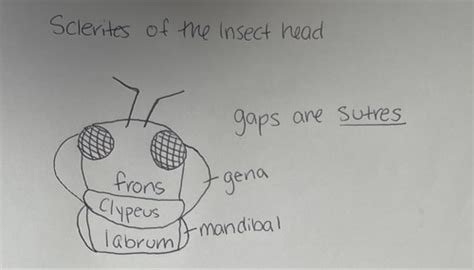 Sclerites of the Insect head
gaps are sutres
frons
gena
Clypeus
labrum
mandibal